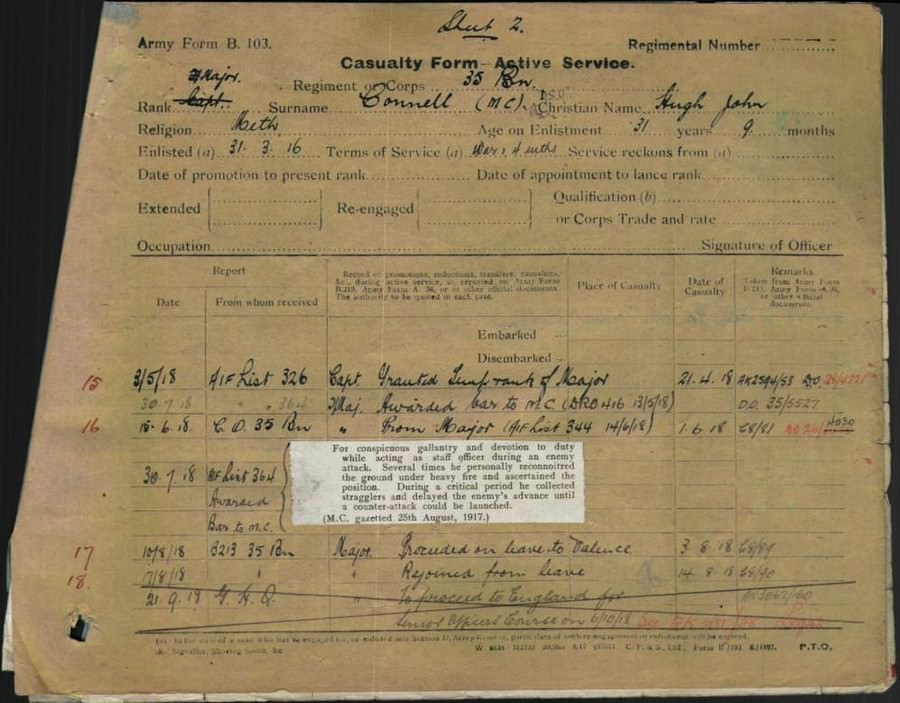 Sheet 2.
Army Form B. 103.
Regimental Number
Casualty Form—Active Service.
T/Major. Regiment or Corps 35 Bn.
Rank Capt. Surname Connell (MC). D.S.O. Christian Name Hugh John
Religion Meth Age on Enlistment 31 years 9 months
Enlisted (a) 31. 3. 16 Terms of Service (a) War & 4 mths Service reckons from (a)
Date of promotion to present rank Date of appointment to lance rank
Extended Re-engaged Qualification (b)
or Corps Trade and rate
Occupation Signature of Officer
Report
Date From whom received
Record of promotions, reductions, transfers, casualties, &c., during active service, as reported on Army Form B.213, Army Form A. 36, or in other official documents. The authority to be quoted in each case.
Place of Casualty
Date of Casualty
Remarks
Taken from Army Form B.213, Army Form A.36, or other official documents.
Embarked
Disembarked
15 3/5/18 AIF List 326 Capt. Granted Temp rank of Major 21. 4. 18 DO
30.7.18 " " 364 T/Maj. Awarded bar to M.C (DRO 416 13/5/18) D.O. 35/5527
16 15. 6. 18 C.O. 35 Bn " From Major (AIF List 344 14/6/18) 1. 6. 18
For conspicuous gallantry and devotion to duty
while acting as staff officer during an enemy
attack. Several times he personally reconnoitred
the ground under heavy fire and ascertained the
position. During a critical period he collected
stragglers and delayed the enemy's advance until
a counter-attack could be launched.
(M.C. gazetted 25th August, 1917.)
30. 7. 18 AIF List 364
Awarded
Bar to M.C.
17 10/8/18 B213 35 Bn Major. Proceeded on leave to Valence 3. 8. 18
18. 17/8/18 " " Rejoined from leave 14. 8. 18
21. 9. 18 G.H.Q. " To proceed to England for
Senior Officers Course on 6/10/18
P.T.O.